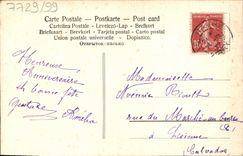 7729/99
Carte Postale - Postkarte - Post card
Cartolina Postale - Levelező-Lap - Brefkort
Briefkaart - Brevkort - Tarjeta postal - Dopisnice
Union postale universelle - Dopisnice.
Heureux
Anniversaire
et bonne fête
Amélie
Mademoiselle
Noémie
rue du Marché au
à Lisieux
Calvados